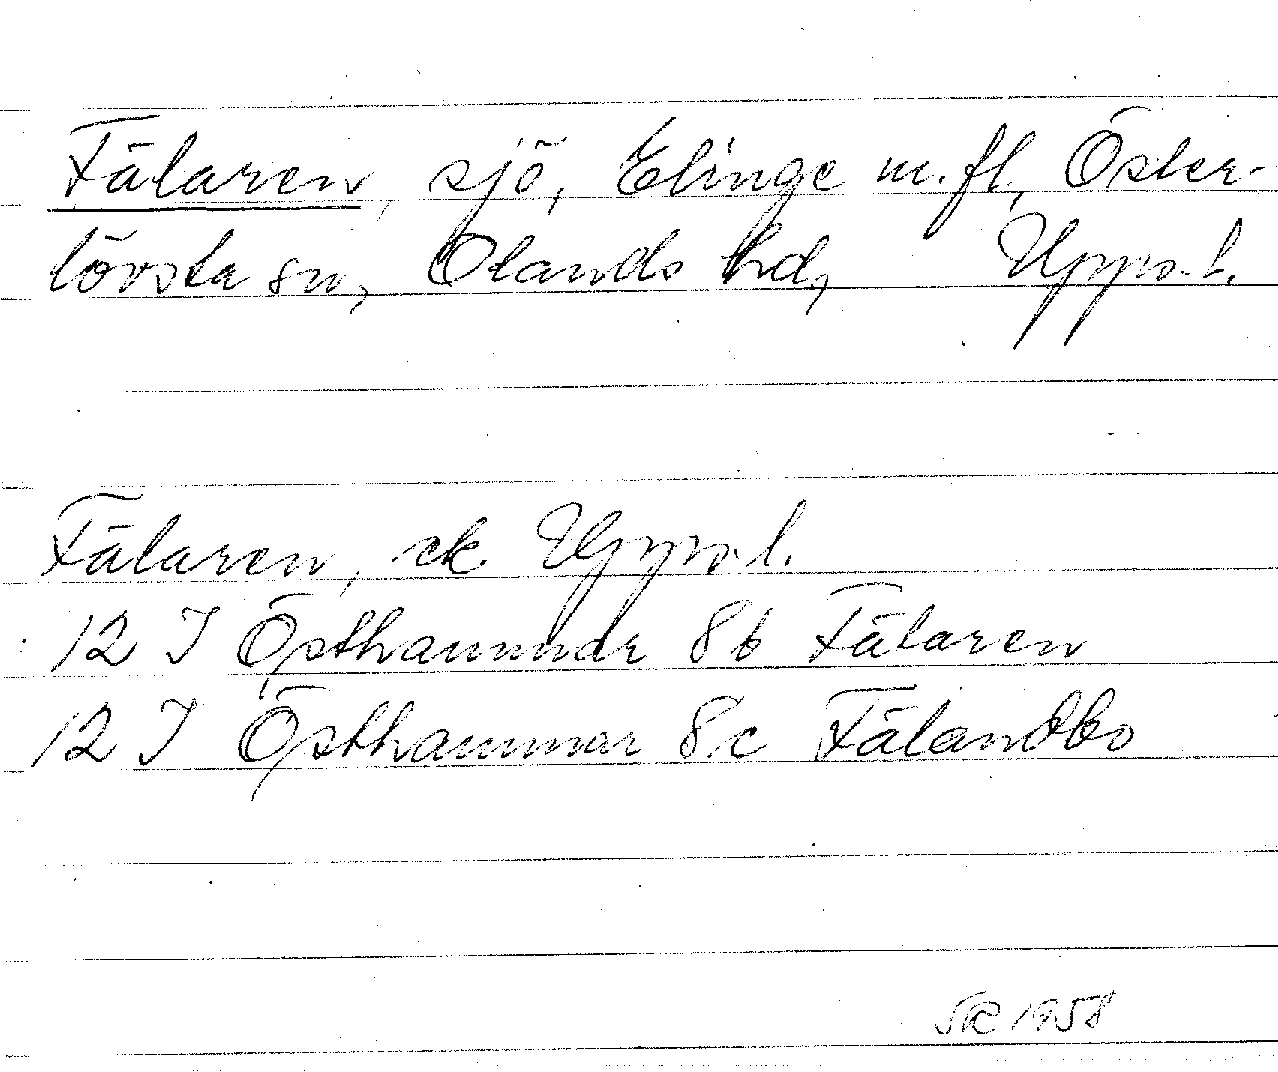 Fälaren, sjö, Elinge m.fl, Öster-
lövsta sn, Olands hd, Upps.l.
Fälaren, ek. Upps.l.
12 I Östhammar 8b Fälaren
12 I Östhammar 8c Fälandbo
SR 1958